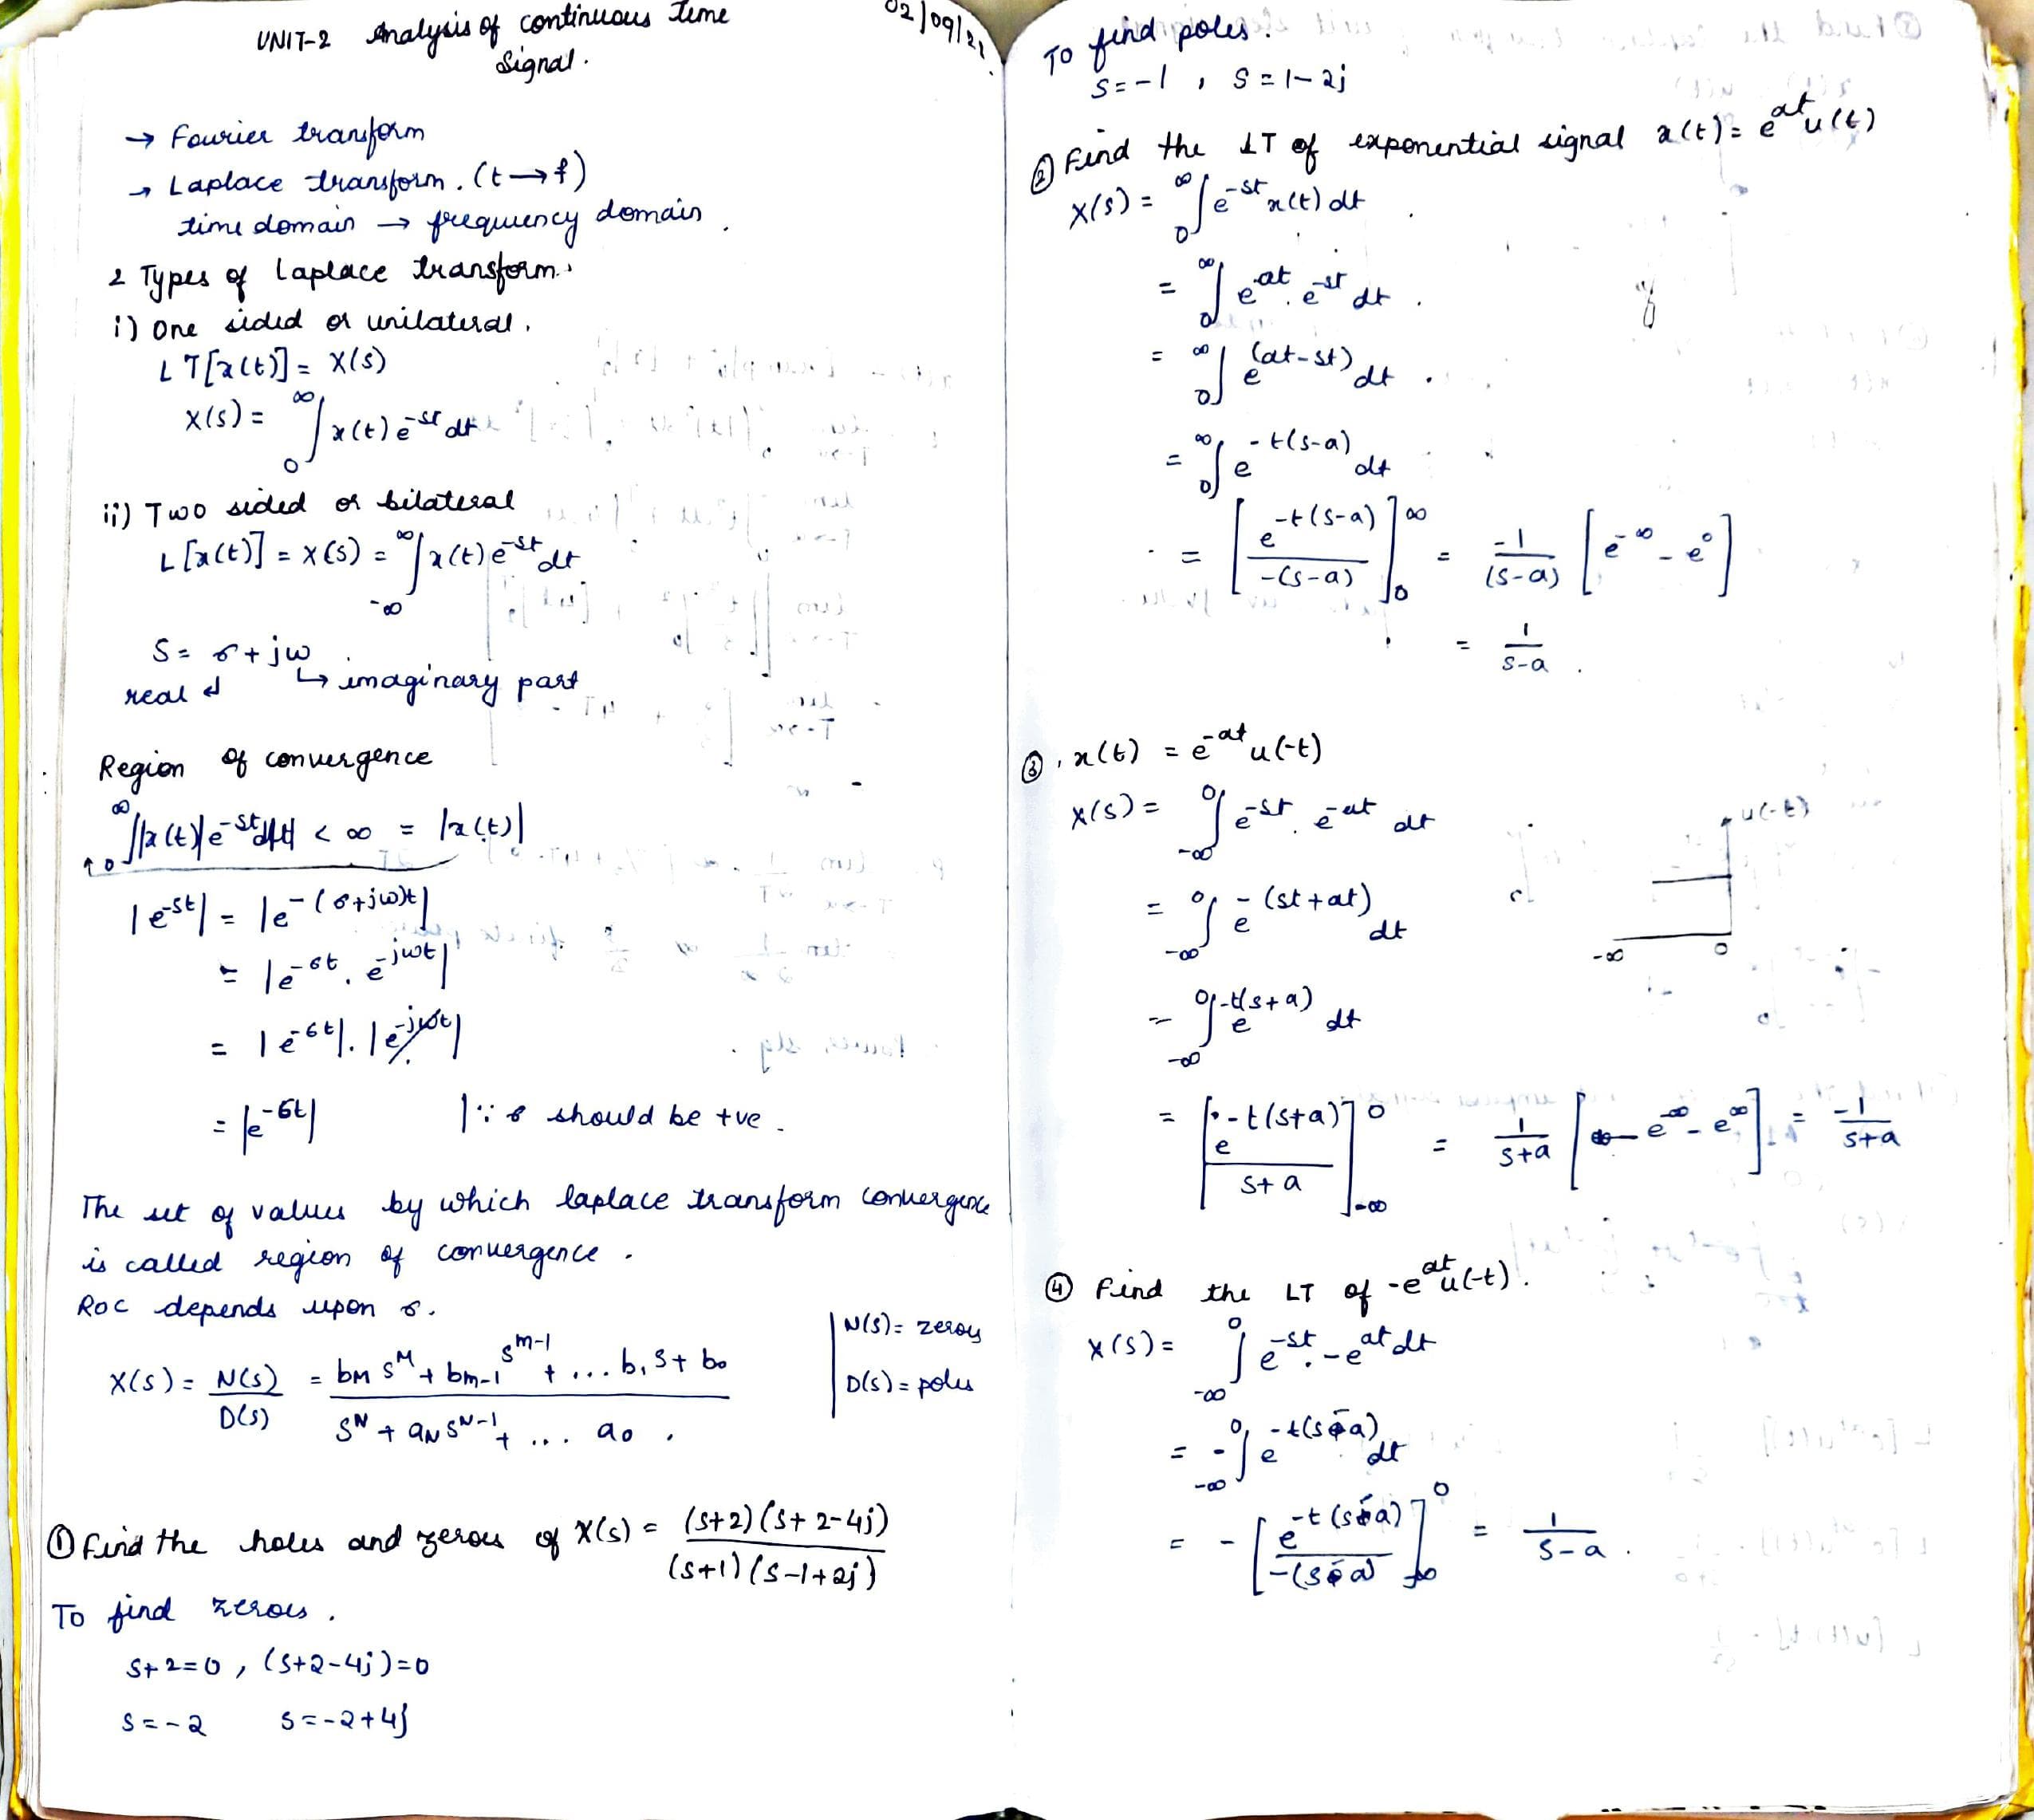 UNIT-2 Analysis of continuous time
signal.
02/09/21
→ Fourier transform
→ Laplace transform. (t→f)
time domain → frequency domain.
2 Types of Laplace transform.
i) One sided or unilateral.
LT[x(t)] = X(s)
X(s) = ∫₀^∞ x(t) e^-st dt
ii) Two sided or bilateral
L[x(t)] = X(s) = ∫_-∞^∞ x(t) e^-st dt
S = σ + jω
real ↲ ↳ imaginary part
Region of convergence
∫₀^∞ |x(t)| e^-st dt < ∞ = |x(t)|
|e^-st| = |e^-(σ+jω)t|
= |e^-σt . e^-jωt|
= |e^-σt| . |e^-jωt|
= |e^-σt| |∵ σ should be +ve.
The set of values by which laplace transform convergence
is called region of convergence.
ROC depends upon σ.
X(s) = N(s)/D(s) = (bM s^M + bm-1 s^m-1 + ... b1 s + b0) / (s^N + aN s^N-1 + ... a0).
N(s) = zeroes
D(s) = poles
① Find the holes and zeroes of X(s) = (s+2)(s+2-4j) / (s+1)(s-1+2j)
To find zeroes.
s+2=0, (s+2-4j)=0
s=-2 s=-2+4j
To find poles:
s=-1, s=1-2j
② Find the LT of exponential signal x(t) = e^at u(t)
X(s) = ∫₀^∞ e^-st x(t) dt
= ∫₀^∞ e^at . e^-st dt.
= ∫₀^∞ e^(at-st) dt.
= ∫₀^∞ e^-t(s-a) dt
= [e^-t(s-a) / -(s-a)]₀^∞ = -1/(s-a) [e^-∞ - e^0]
= 1/s-a.
③. x(t) = e^-at u(-t)
X(s) = ∫_-∞^0 e^-st . e^-at dt
u(-t)
= ∫_-∞^0 e^-(st+at) dt
-∞ 0
= ∫_-∞^0 e^-t(s+a) dt
= [e^-t(s+a) / s+a]_-∞^0 = 1/s+a [e^-∞ - e^∞] = -1/s+a
④ Find the LT of -e^at u(-t).
X(s) = ∫_-∞^0 e^-st . -e^at dt
= -∫_-∞^0 e^-t(s-a) dt
= -[e^-t(s-a) / -(s-a)]_-∞^0 = 1/s-a.